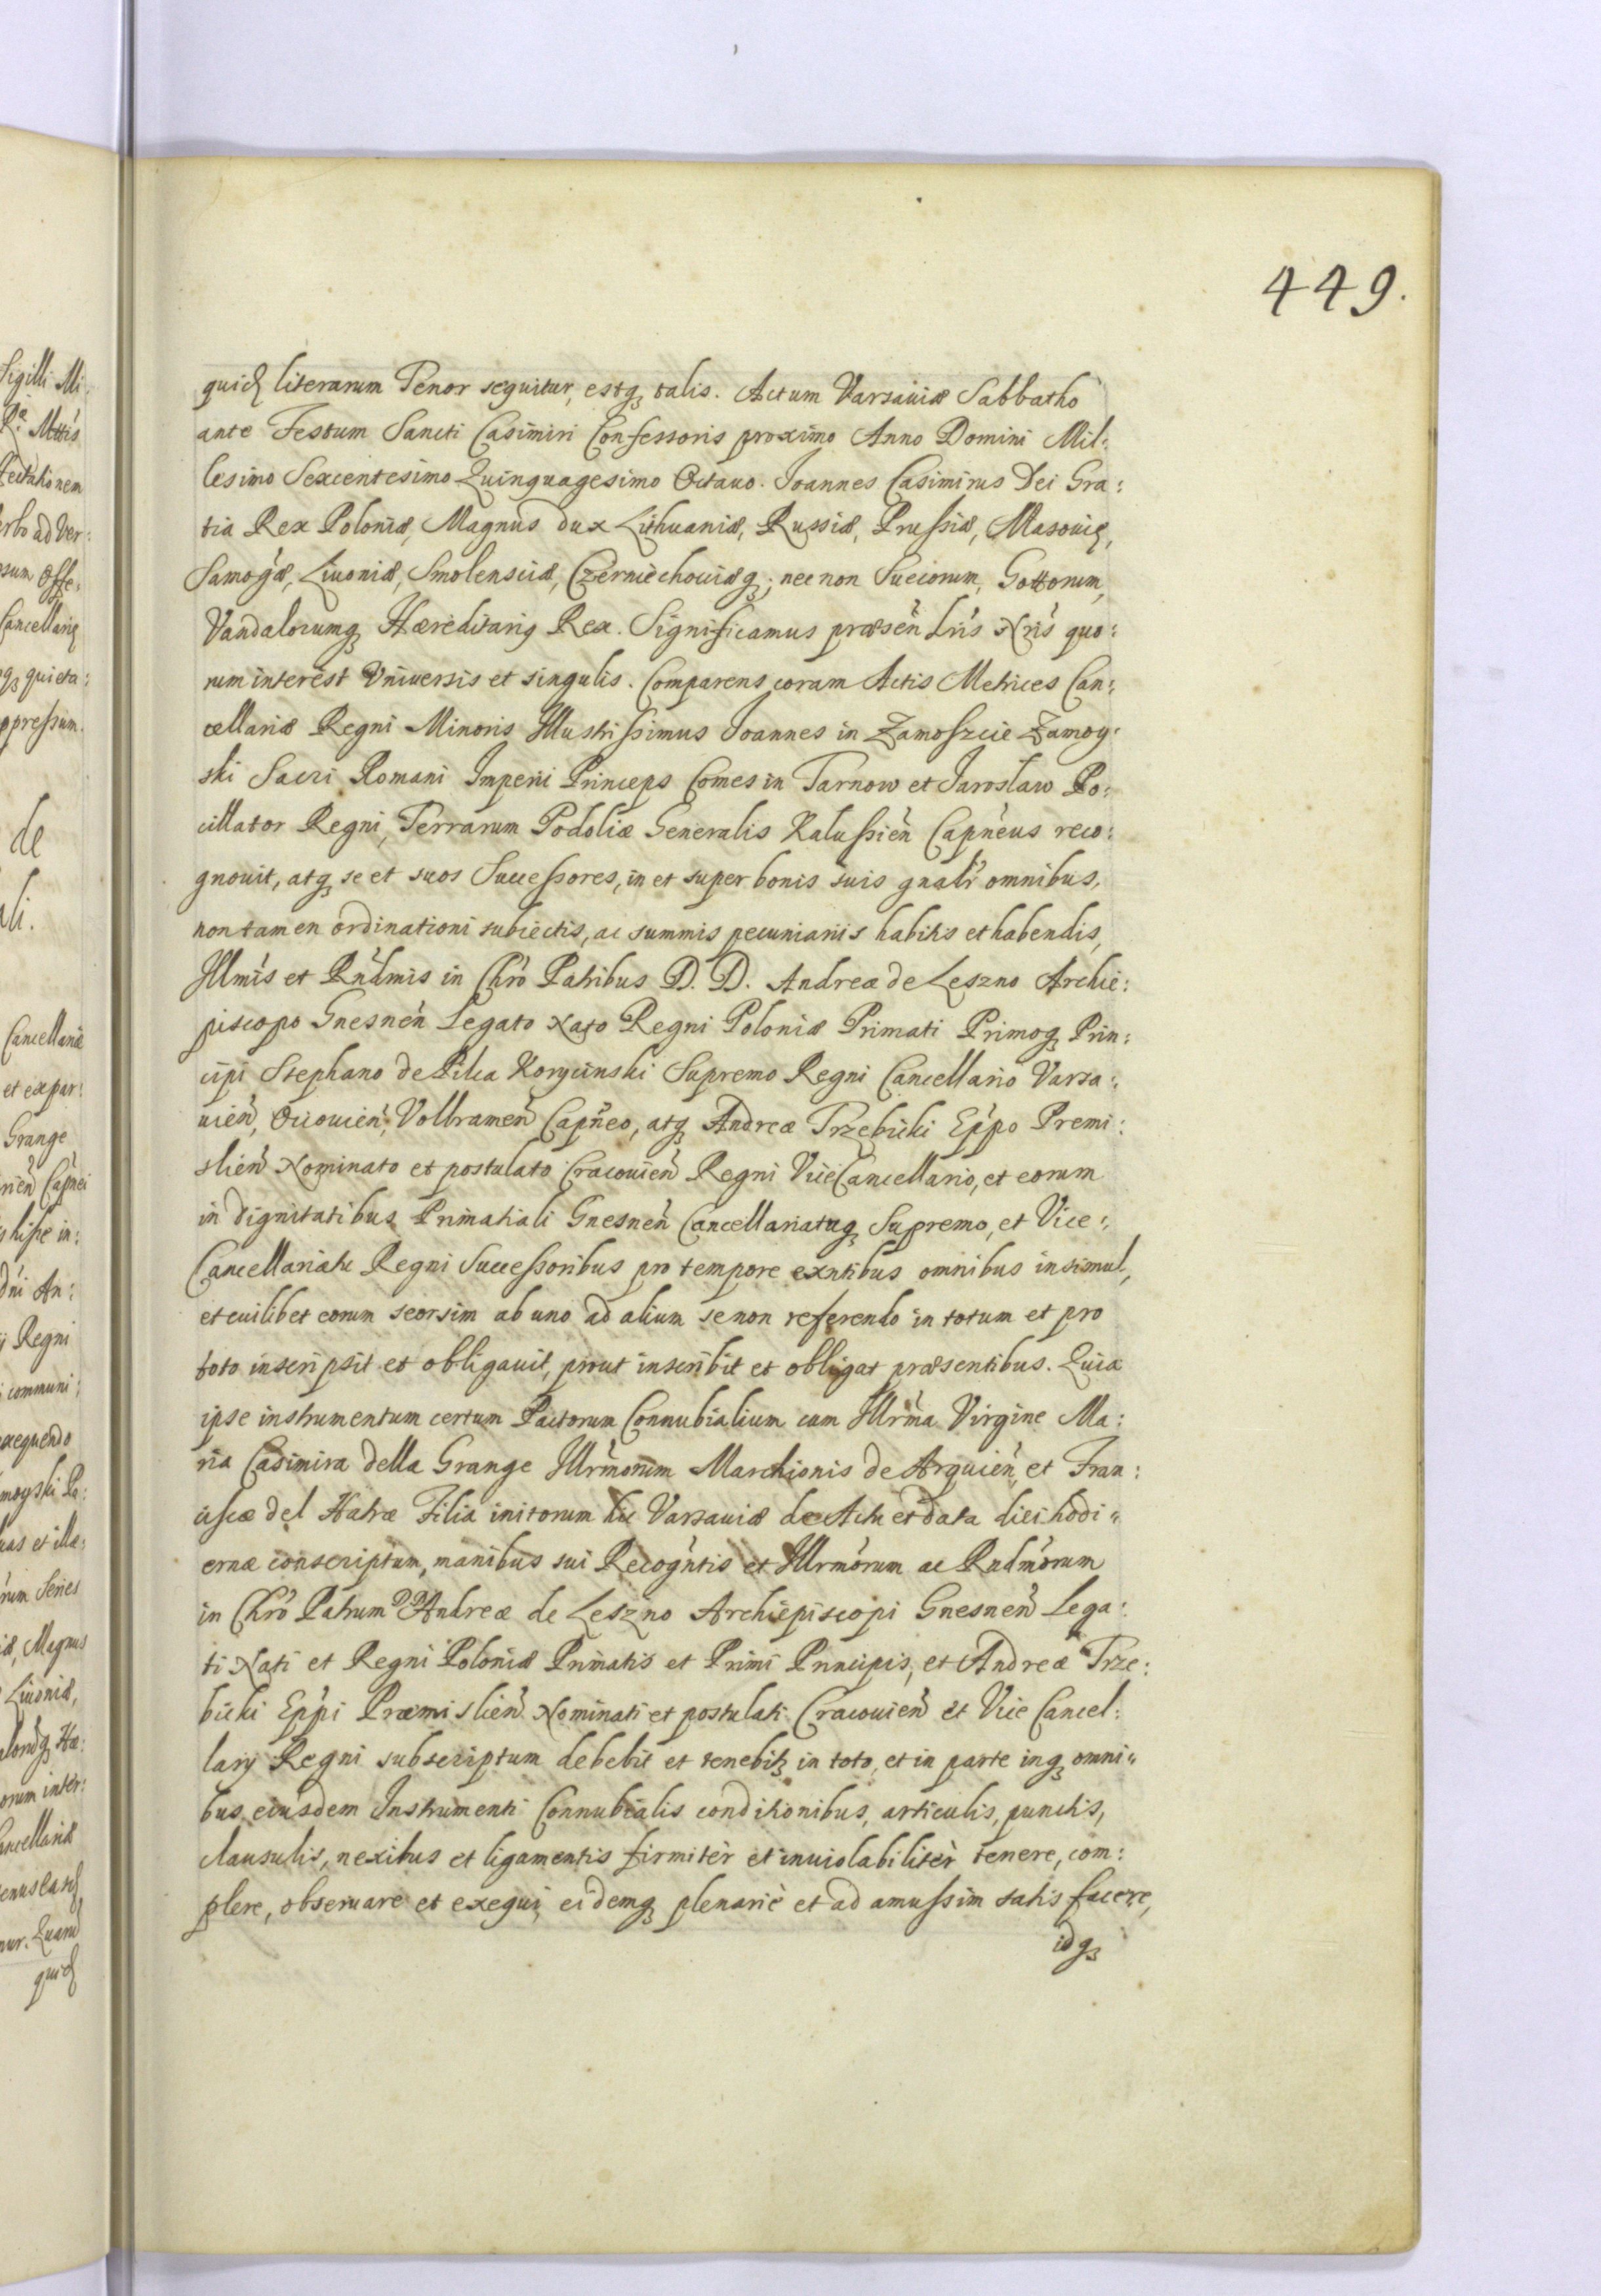 449.
quid literarum Tenor sequitur, estq talis. Actum Varsaviæ Sabbatho
ante Festum Sancti Casimiri Confessoris proximo Anno Domini Mil:
lesimo Sexcentesimo Quinquagesimo Octauo. Joannes Casimirus Dei Gra:
tia Rex Poloniæ, Magnus dux Lithuaniæ, Russiæ, Prussiæ, Masouię,
Samogæ, Liuoniæ, Smolensciæ, Czerniechouiæq; nec non Suecorum, Gottorum,
Vandalorumq Hæreditarig Rex. Significamus præsen Lris Nris quo:
rum interest Vniuersis et singulis. Comparens coram Actis Metrices Can:
cellariæ Regni Minoris Illustrissimus Joannes in Zamoszcie Zamoy:
ski Sacri Romani Imperii Princeps Comes in Tarnow et Jaroslaw Po:
cillator Regni, Terrarum Podoliæ Generalis Kalussien Capneus reco:
gnouit, atq se et suos Successores, in et super bonis suis gnali omnibus,
non tamen ordinationi subiectis, ac summis pecuniariis habitis et habendis,
Illmis et Rndmis in Chro Patribus D. D. Andreæ de Leszno Archie:
piscopo Gnesnen Legato Nato Regni Poloniæ Primati Primoq Prin:
cipi Stephano de Pilca Koryciinski Supremo Regni Cancellario Varsa:
uien, Ociouien, Volbramen Capneo, atq Andreæ Trzebicki Eppo Premi:
slien Nominato et postulato Cracouien Regni ViceCancellario, et eorum
in dignitatibus Primatiali Gnesnen Cancellariatuq Supremo, et Vice:
Cancellariatu Regni Successoribus pro tempore exntibus omnibus insimul,
et cuilibet eorum seorsim ab uno ad alium se non referendo in totum et pro
toto inscripsit et obligauit, prout inscribit et obligat præsentibus. Quia
ipse instrumentum certum Pactorum Connubialium cum Illrma Virgine Ma:
ria Casimira della Grange Illrmorum Marchionis de Arquien, et Fran:
ciscæ del Hatræ Filia initorum hic Varsauiæ de Actu et data diei hodi:
ernæ conscriptum, manibus sui Recogntis et Illrmorum ac Rndmorum
in Chro Patrum DD Andreæ de Leszno Archiepiscopi Gnesnen Lega:
ti Nati et Regni Poloniæ Primatis et Primi Principis, et Andreæ Trze:
bicki Eppi Præmislien Nominati et postulati Cracouien et Vice Cancel:
lary Regni subscriptum debebit et tenebit in toto, et in parte inq omni:
bus eiusdem Instrumenti Connubialis conditionibus, articulis, punctis,
clausulis, nexibus et ligamentis firmitèr et inuiolabilitèr tenere, com:
plere, obseruare et exequi, eidemq plenariè et ad amussim satis facere,
idq